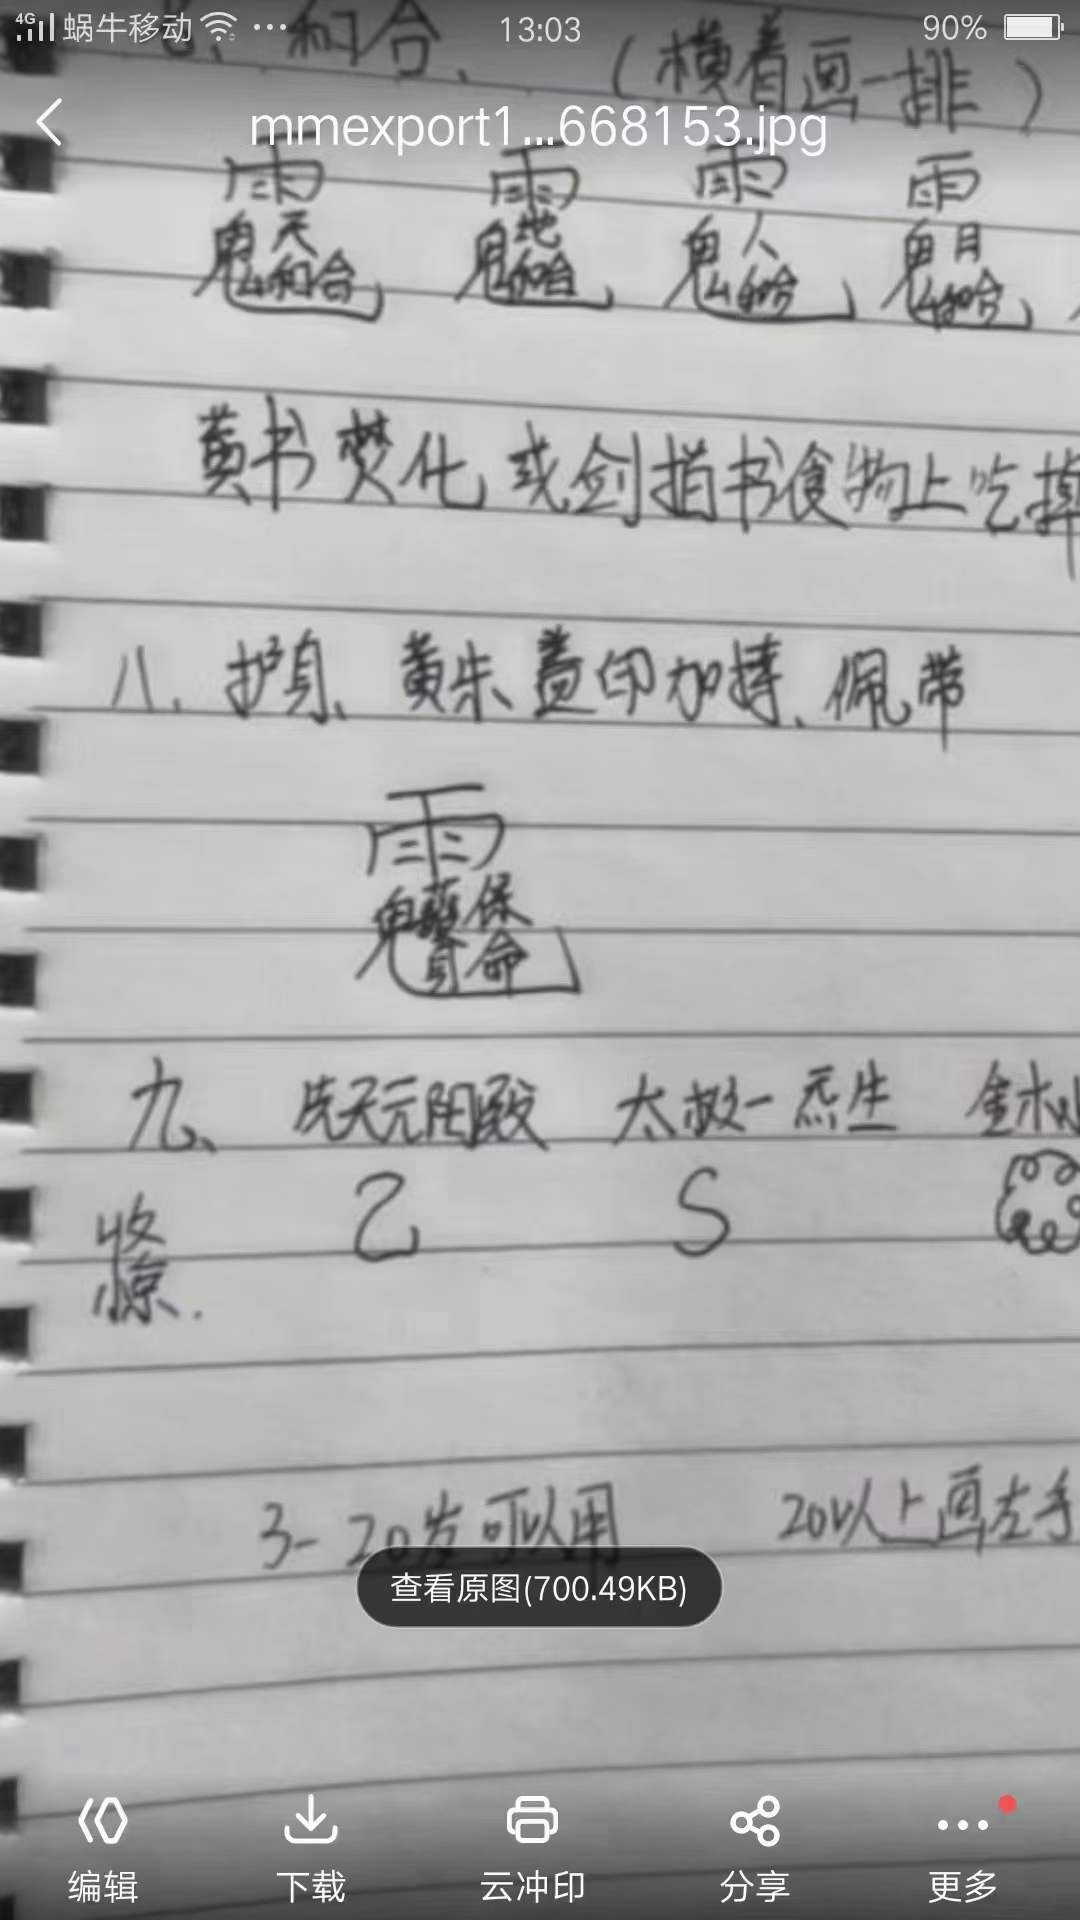 4G 蜗牛移动 13:03 90%
和合、 (横着画一排)
mmexport1...668153.jpg
雨 雨 雨 雨
鬼 天 和合 鬼 地 和合 鬼 人 和合 鬼 月 和合
黄书焚化或剑指书食物上吃掉
八、护身、黄朱盖印加持、佩带
雨
鬼 保命
九、 先天元阳殿 太极一炁生 金木
收惊. 乙 S
3-20岁可以用 20以上画左手
查看原图(700.49KB)
编辑 下载 云冲印 分享 更多